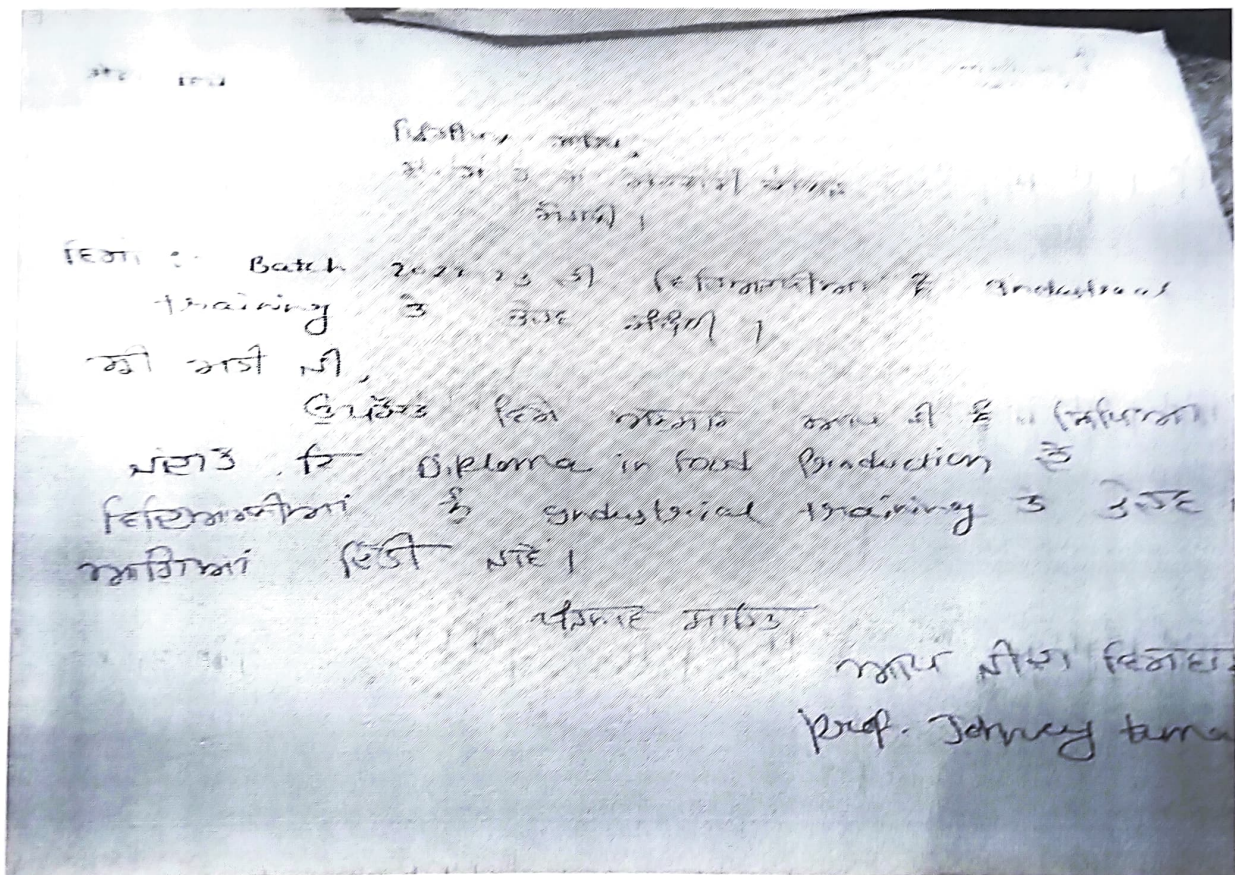 ਸੇਵਾ ਵਿਖੇ
ਪ੍ਰਿੰਸੀਪਲ ਸਾਹਿਬ,
ਸਰਕਾਰੀ ਕਾਲਜ
ਵਿਸ਼ਾ :- Batch 2022-23 ਦੀ ਵਿਦਿਆਰਥੀਆਂ ਨੂੰ Industrial
training ਤੇ ਭੇਜਣ ਸੰਬੰਧੀ ।
ਸ੍ਰੀ ਮਤੀ ਜੀ,
ਉਪਰੋਕਤ ਵਿਸ਼ੇ ਅਨੁਸਾਰ ਆਪ ਜੀ ਨੂੰ ਲਿਖਿਆ
ਜਾਂਦਾ ਹੈ ਕਿ Diploma in Food Production ਦੇ
ਵਿਦਿਆਰਥੀਆਂ ਨੂੰ Industrial training ਤੇ ਭੇਜਣ
ਆਗਿਆ ਦਿੱਤੀ ਜਾਵੇ ।
ਧੰਨਵਾਦ ਸਾਹਿਤ
ਆਪ ਜੀ ਦਾ
Prof. Johney